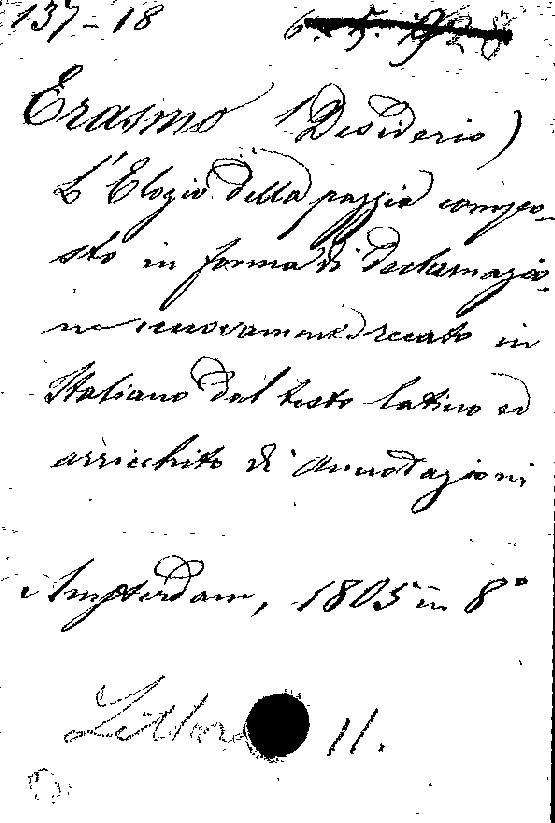 137-18 6.5.928
Erasmo (Desiderio)
L'Elogio della pazzia compo-
sto in forma di declamazio-
ne nuovamente recato in
Italiano dal testo latino ed
arricchito di annotazioni
Amsterdam, 1805 in 8°
11.